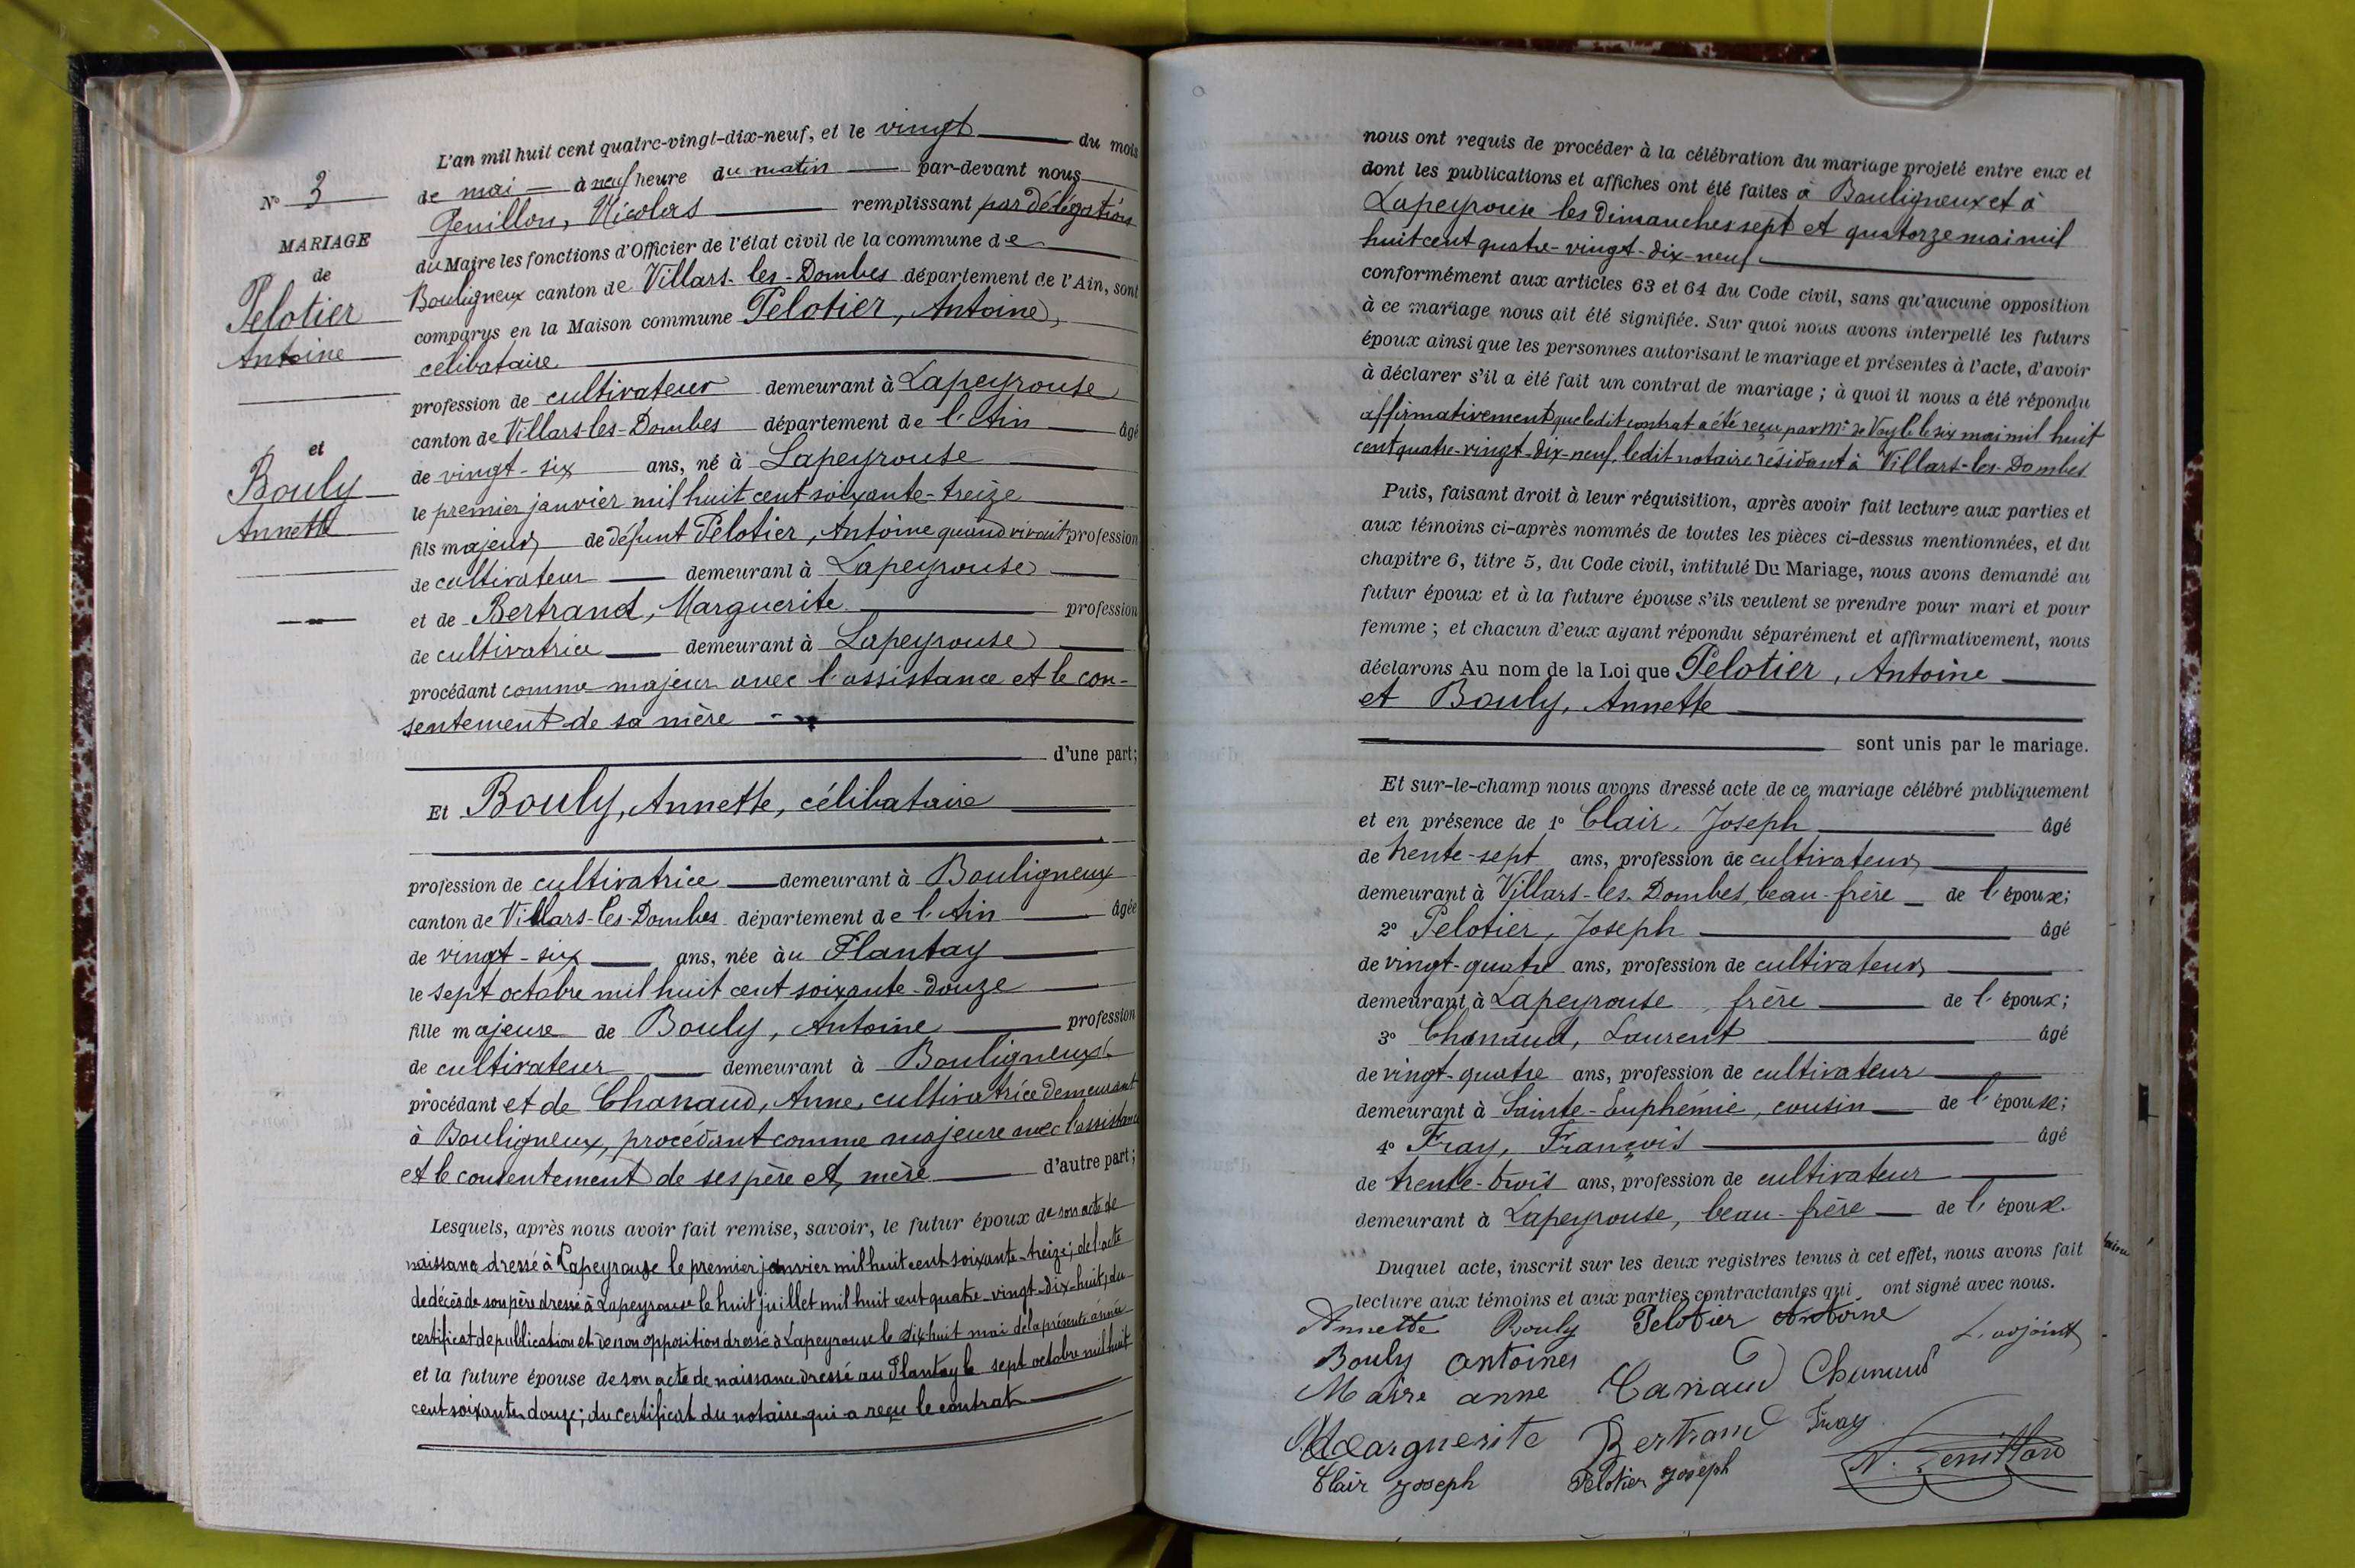 N° 3
MARIAGE
de
Pelotier
Antoine
et
Bouly
Annette
L'an mil huit cent quatre-vingt-dix-neuf, et le vingt du mois
de mai à neuf heure du matin par-devant nous
Genillon, Nicolas remplissant par délégation
du Maire les fonctions d'Officier de l'état civil de la commune de
Bouligneux canton de Villars-les-Dombes département de l'Ain, sont
comparus en la Maison commune Pelotier, Antoine,
célibataire
profession de cultivateur demeurant à Lapeyrouse
canton de Villars-les-Dombes département de l'Ain âgé
de vingt-six ans, né à Lapeyrouse
le premier janvier mil huit cent soixante-treize
fils majeur de défunt Pelotier, Antoine quand vivait profession
de cultivateur demeurant à Lapeyrouse
et de Bertrand, Marguerite profession
de cultivatrice demeurant à Lapeyrouse
procédant comme majeur avec l'assistance et le con-
sentement de sa mère
d'une part;
Et Bouly, Annette, célibataire
profession de cultivatrice demeurant à Bouligneux
canton de Villars-les-Dombes département de l'Ain âgée
de vingt-six ans, née àu Plantay
le sept octobre mil huit cent soixante-douze
fille majeure de Bouly, Antoine profession
de cultivateur demeurant à Bouligneux
procédant et de Chanaud, Anne, cultivatrice demeurant
à Bouligneux, procédant comme majeure avec l'assistance
et le consentement de ses père et mère d'autre part;
Lesquels, après nous avoir fait remise, savoir, le futur époux de son acte de
naissance dressé à Lapeyrouse le premier janvier mil huit cent soixante-treize; de l'acte
de décès de son père dressé à Lapeyrouse le huit juillet mil huit cent quatre-vingt-dix-huit; du
certificat de publication et de non opposition dressé à Lapeyrouse le dix-huit mai de la présente année
et la future épouse de son acte de naissance dressé au Plantay le sept octobre mil huit
cent soixante douze; du certificat du notaire qui a reçu le contrat
nous ont requis de procéder à la célébration du mariage projeté entre eux et
dont les publications et affiches ont été faites à Bouligneux et à
Lapeyrouse les dimanches sept et quatorze mai mil
huit cent quatre-vingt-dix-neuf
conformément aux articles 63 et 64 du Code civil, sans qu'aucune opposition
à ce mariage nous ait été signifiée. Sur quoi nous avons interpellé les futurs
époux ainsi que les personnes autorisant le mariage et présentes à l'acte, d'avoir
à déclarer s'il a été fait un contrat de mariage; à quoi il nous a été répondu
affirmativement que ledit contrat a été reçu par Me de le six mai mil huit
cent quatre-vingt-dix-neuf, ledit notaire résidant à Villars-les-Dombes
Puis, faisant droit à leur réquisition, après avoir fait lecture aux parties et
aux témoins ci-après nommés de toutes les pièces ci-dessus mentionnées, et du
chapitre 6, titre 5, du Code civil, intitulé Du Mariage, nous avons demandé au
futur époux et à la future épouse s'ils veulent se prendre pour mari et pour
femme; et chacun d'eux ayant répondu séparément et affirmativement, nous
déclarons Au nom de la Loi que Pelotier, Antoine
et Bouly, Annette
sont unis par le mariage.
Et sur-le-champ nous avons dressé acte de ce mariage célébré publiquement
et en présence de 1° Clair, Joseph âgé
de trente-sept ans, profession de cultivateur
demeurant à Villars-les-Dombes, beau-frère de l'époux;
2° Pelotier, Joseph âgé
de vingt-quatre ans, profession de cultivateur
demeurant à Lapeyrouse frère de l'époux;
3° Chanaud, Laurent âgé
de vingt-quatre ans, profession de cultivateur
demeurant à Sainte-Euphémie, cousin de l'épouse;
4° Fray, François âgé
de trente-trois ans, profession de cultivateur
demeurant à Lapeyrouse, beau-frère de l'époux.
Duquel acte, inscrit sur les deux registres tenus à cet effet, nous avons fait
lecture aux témoins et aux parties contractantes qui ont signé avec nous.
Annette Bouly Pelotier Antoine
L'adjoint
Bouly antoine
Marre anne Canaud Chanaud
Marguerite Bertrand Fray
Clair Joseph Pelotier Joseph N. Genillon